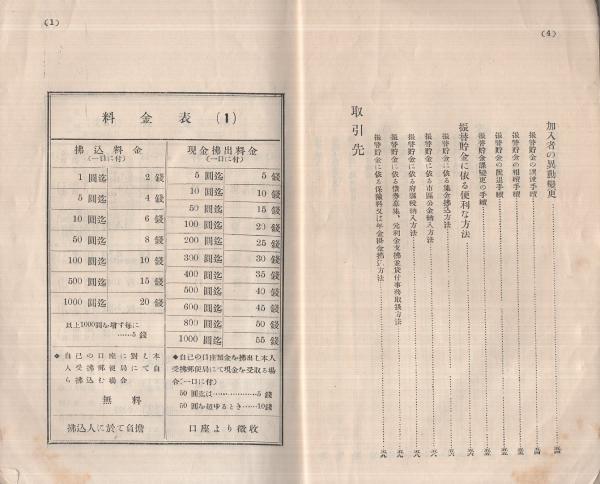 (4)
加入者の異動變更
振替貯金の讓渡手續
振替貯金の相續手續
振替貯金の脫退手續
振替貯金課變更の手續
振替貯金に依る便利な方法
振替貯金に依る集金拂込方法
振替貯金に依る市區公金納入方法
振替貯金に依る府縣稅納入方法
振替貯金に依る債券募集、元利金支拂並貸付事務取扱方法
振替貯金に依る保險料又は年金掛金拂込方法
取引先
(1)
料金表 (1)
拂込料金
(一口に付)
1 圓迄 2 錢
5 圓迄 4 錢
10 圓迄 6 錢
50 圓迄 8 錢
100 圓迄 10 錢
500 圓迄 15 錢
1000 圓迄 20 錢
以上1000圓を增す每に
……5 錢
◆自己の口座に對し本
人受拂郵便局にて自
ら拂込む場合
無料
拂込人に於て負擔
現金拂出料金
(一口に付)
5 圓迄 5 錢
10 圓迄 10 錢
50 圓迄 15 錢
100 圓迄 20 錢
200 圓迄 25 錢
300 圓迄 30 錢
400 圓迄 35 錢
500 圓迄 40 錢
600 圓迄 45 錢
800 圓迄 50 錢
1000 圓迄 55 錢
◆自己の口座預金を拂出し本人
受拂郵便局にて現金を受取る場
合(一口に付)
50 圓迄は……………5錢
50 圓を超ゆるとき……10錢
口座より徵收